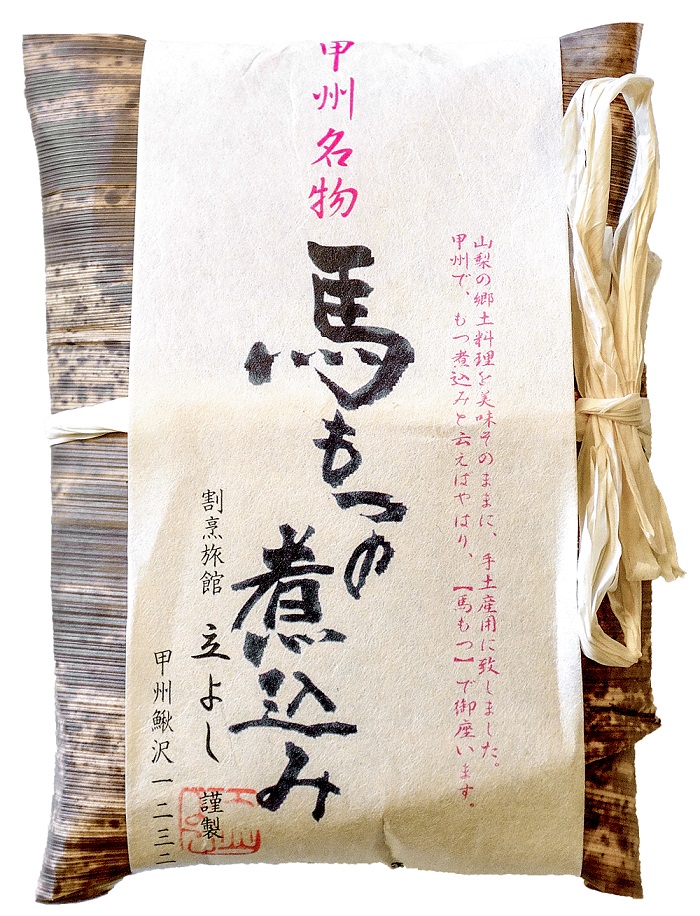 甲州名物
山梨の郷土料理を美味そのままに、手土産用に致しました。
甲州で、もつ煮込みと云えばやはり、【馬もつ】で御座います。
馬もつの
煮込み
割烹旅館 立よし 謹製
甲州鰍沢一二三二